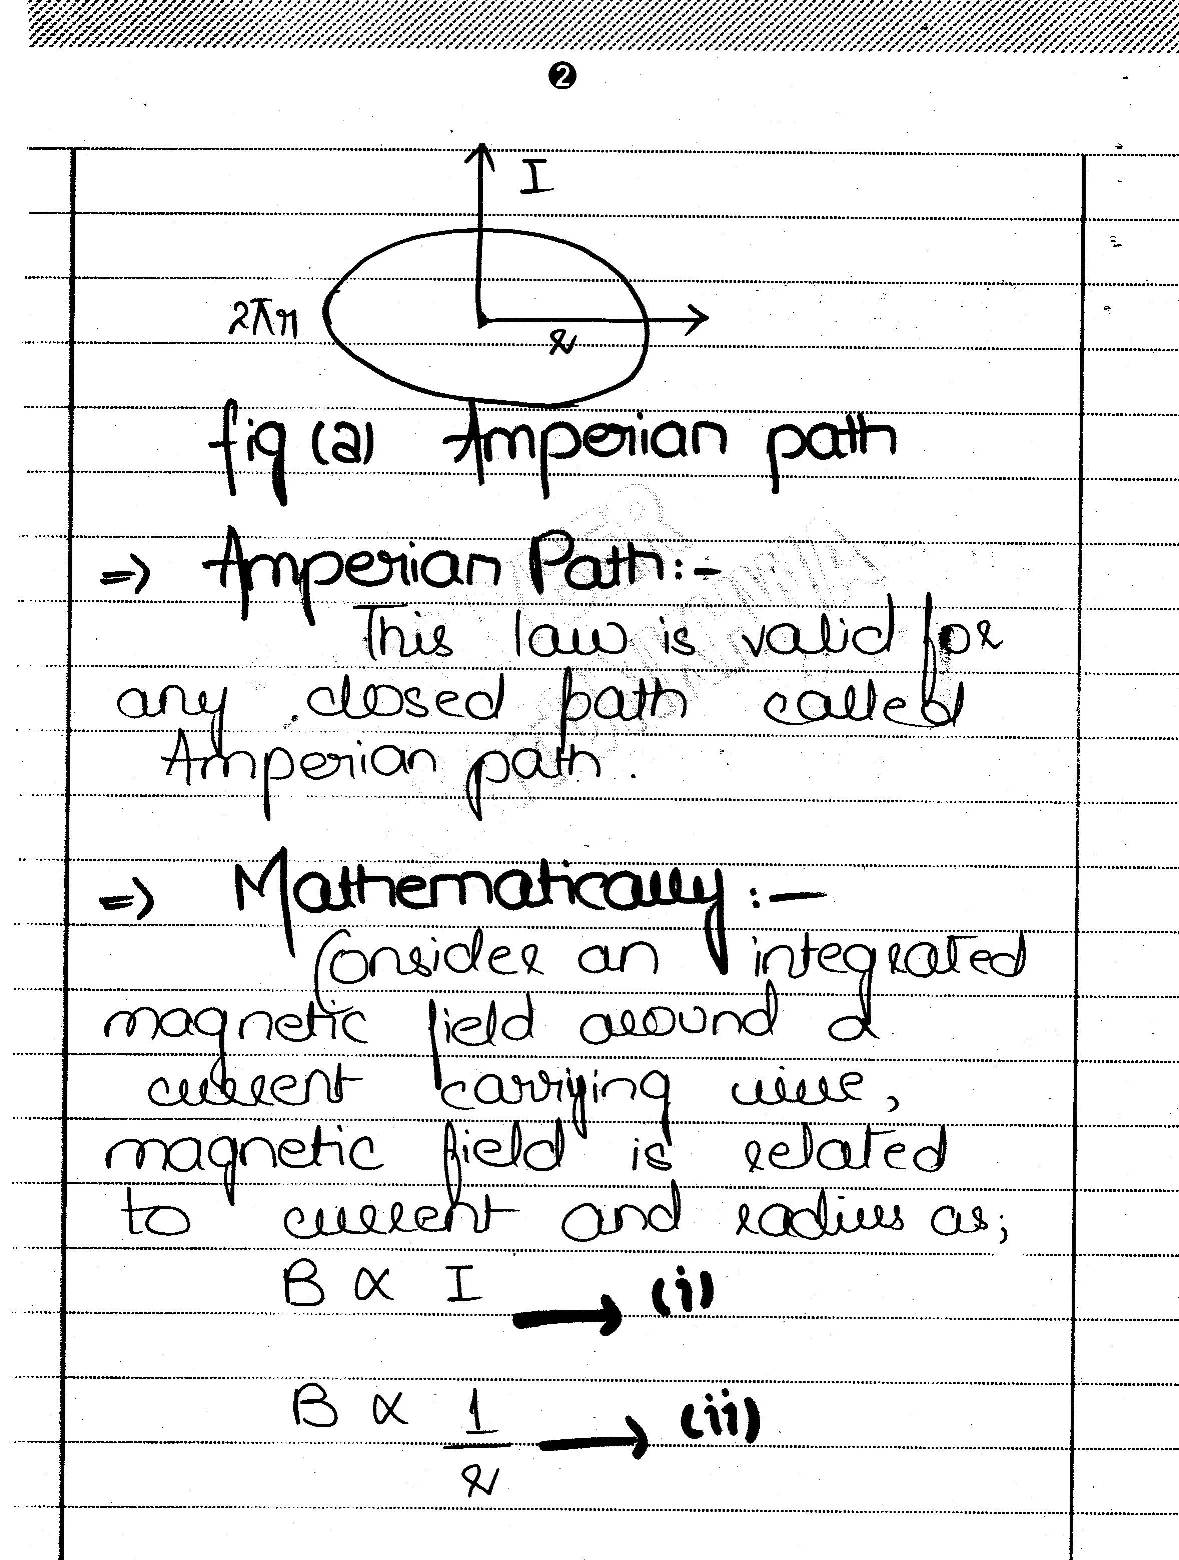 2
I
2πr
r
fig (a) Amperian path
=> Amperian Path:-
This law is valid for
any closed path called
Amperian path.
=> Mathematically:-
Consider an integrated
magnetic field around a
current carrying wire,
magnetic field is related
to current and radius as;
B ∝ I → (i)
B ∝ 1/r → (ii)